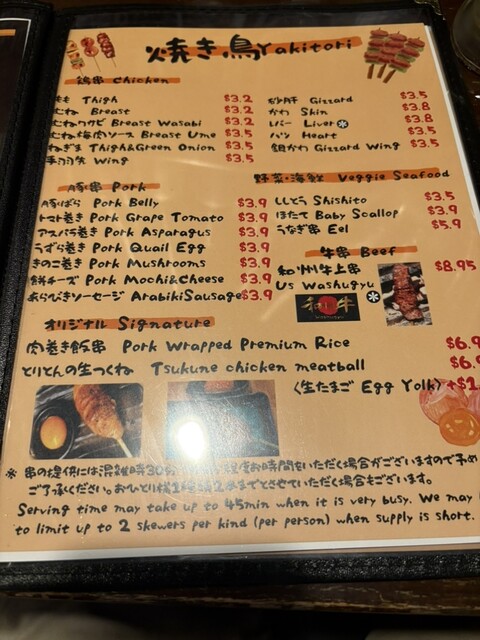 焼き鳥 Yakitori
鶏串 Chicken
もも Thigh $3.2
むね Breast $3.2
むねワサビ Breast Wasabi $3.5
むね梅肉ソース Breast Ume $3.5
ねぎま Thigh&Green Onion $3.5
手羽先 Wing $3.5
砂肝 Gizzard $3.5
かわ Skin $3.8
レバー Liver＊ $3.8
ハツ Heart $3.5
銀かわ Gizzard Wing $3.5
豚串 Pork
豚ばら Pork Belly $3.9
トマト巻き Pork Grape Tomato $3.9
アスパラ巻き Pork Asparagus $3.9
うずら巻き Pork Quail Egg $3.9
きのこ巻き Pork Mushrooms $3.9
餅チーズ Pork Mochi&Cheese $3.9
あらびきソーセージ ArabikiSausage $3.9
野菜・海鮮 Veggie Seafood
ししとう Shishito $3.5
ほたて Baby Scallop $3.9
うなぎ串 Eel $5.9
牛串 Beef
和州牛上串 $8.95
US Washugyu
和牛 ＊
オリジナル Signature
肉巻き飯串 Pork Wrapped Premium Rice $6.9
とりとんの生つくね Tsukune chicken meatball
〈生たまご Egg Yolk〉
※ 串の提供には混雑時30分 お時間をいただく場合がございますので予め
ご了承ください。おひとり様 までとさせていただく場合もございます。
Serving time may take up to 45min when it is very busy. We may
to limit up to 2 skewers per kind (per person) when supply is short.